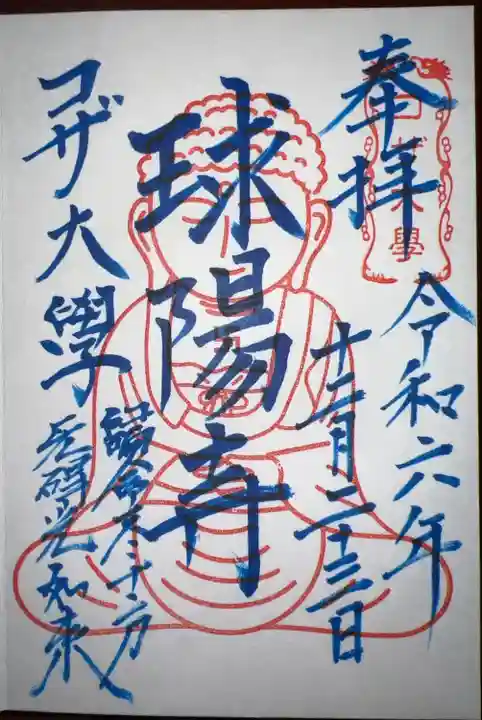 奉拝
令和六年
十二月二十三日
球陽寺
コザ大學
無碍光如来